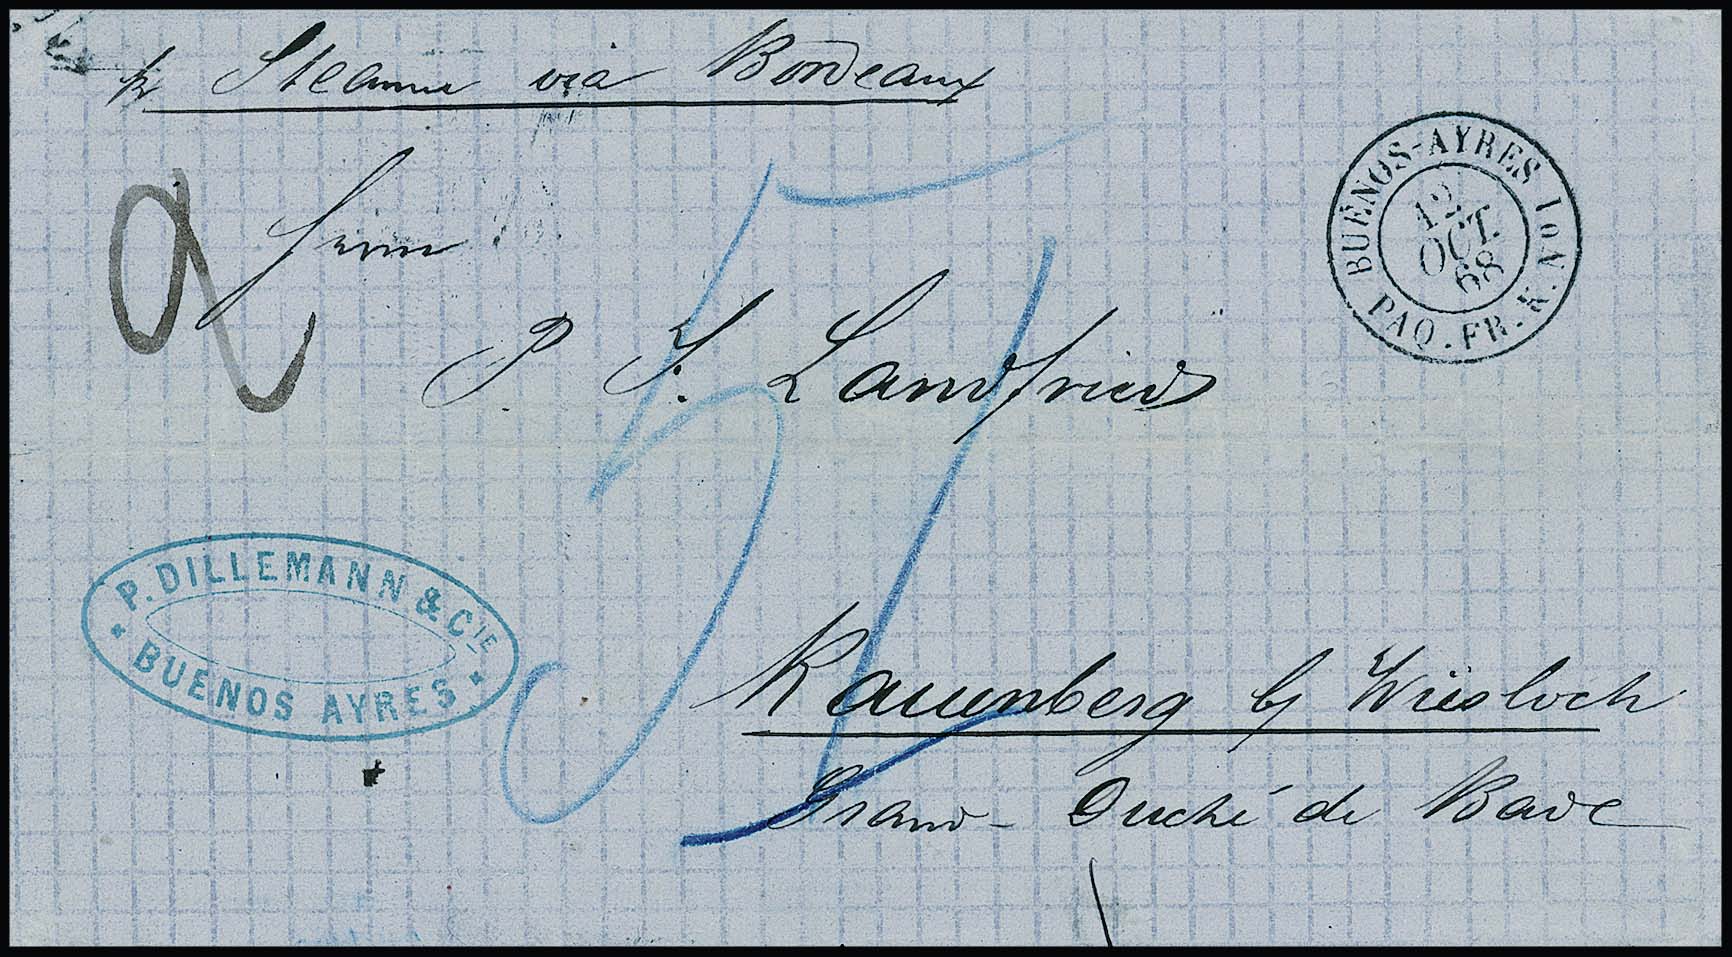 pr Steamer via Bordeaux
2
Herrn
P. J. Landfried
51
BUÉNOS-AYRES
PAQ. FR. K. No 1
12
OCT.
68
P. DILLEMANN & CIE
BUENOS AYRES
Rauenberg b/ Wiesloch
Grand-Duché de Bade